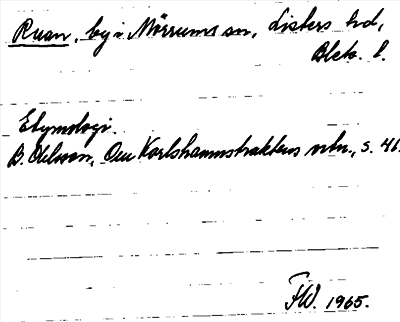 Ruan, by i Mörrums sn, Listers hd,
Blek. l.
Etymologi.
B. Ohlsson, Om Karlshamnstraktens ortn., s. 46.
FW. 1965.